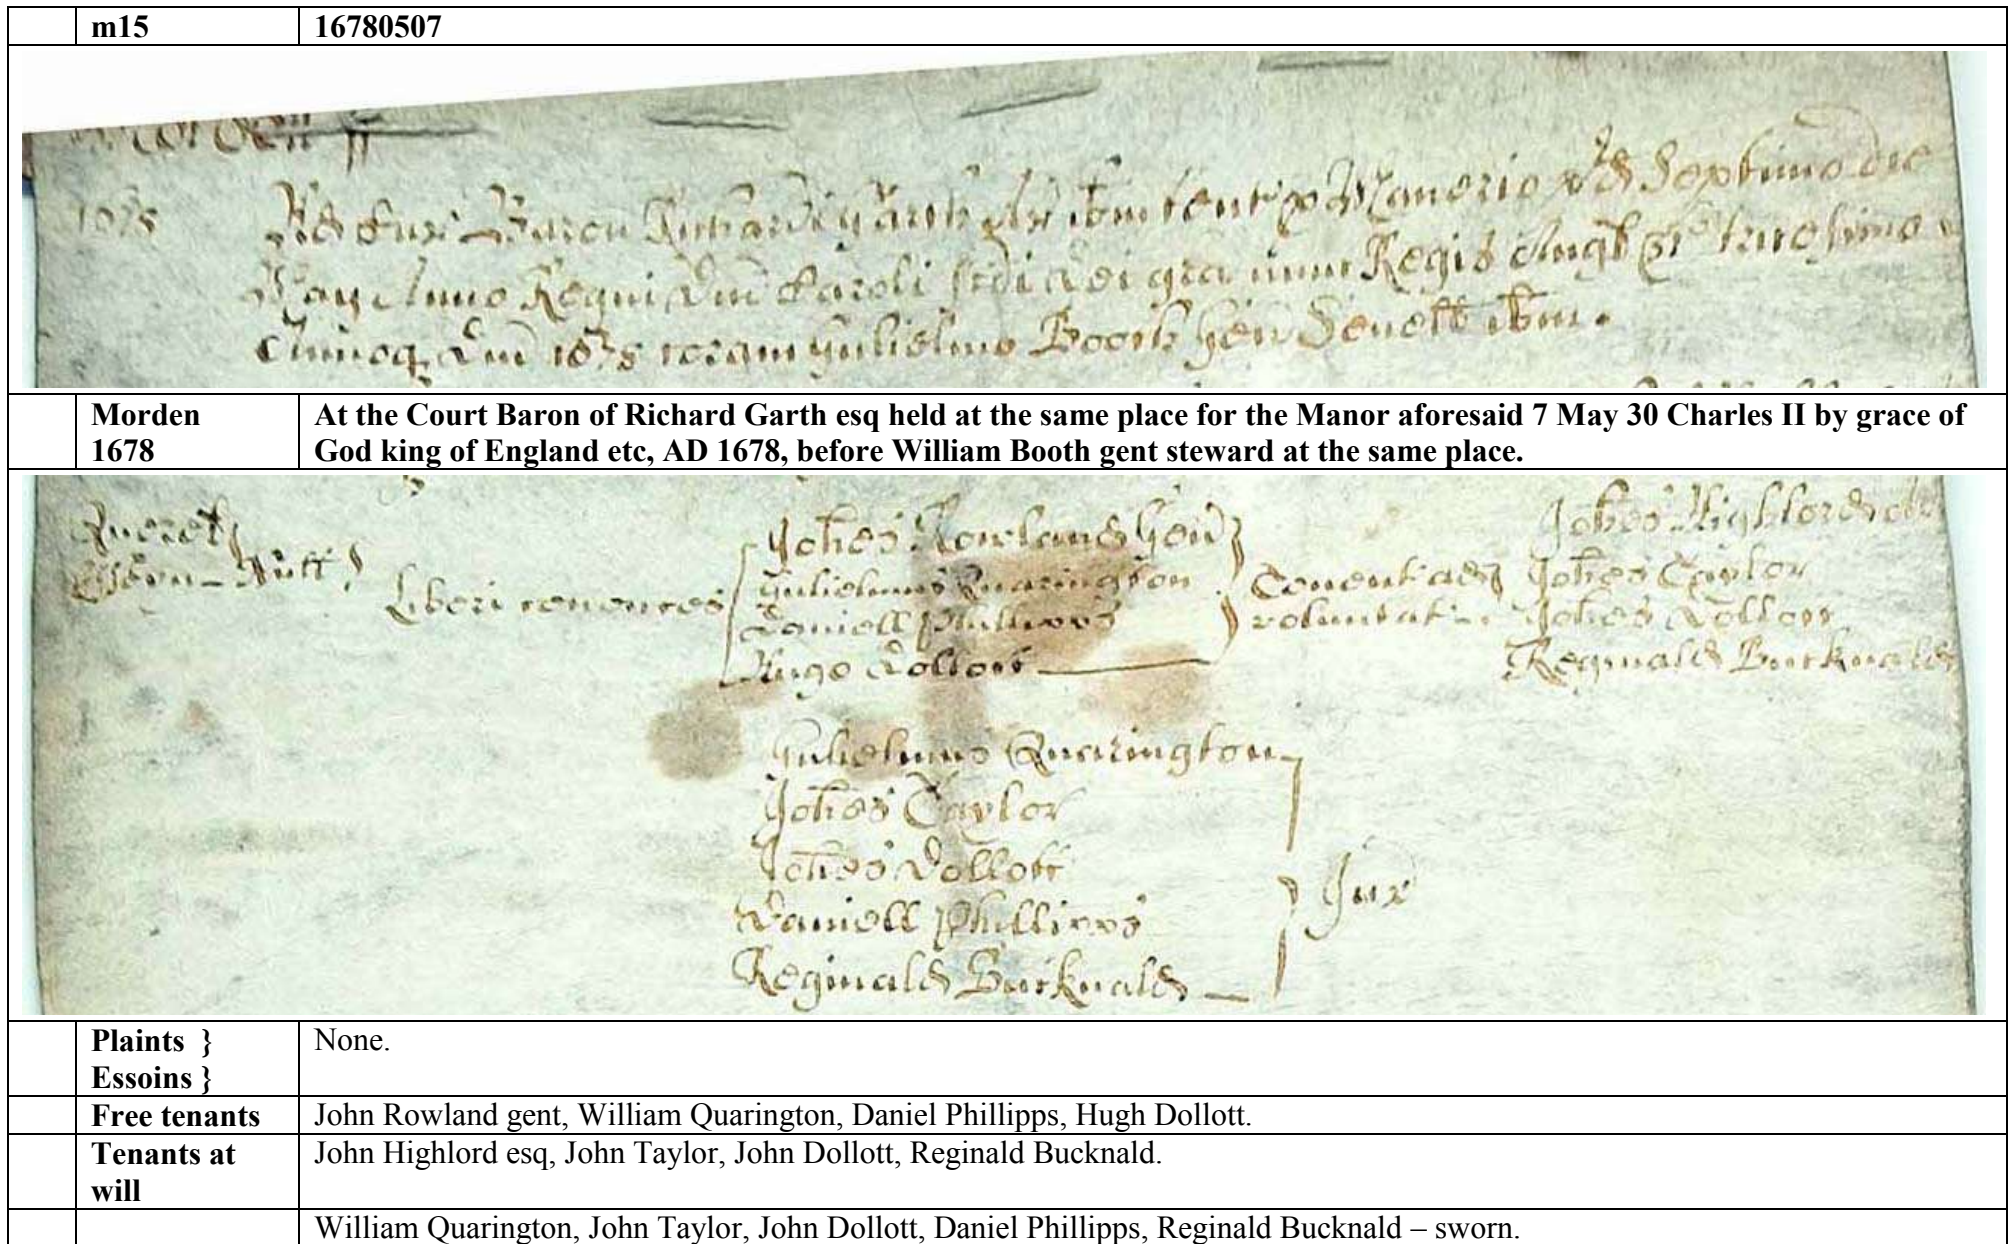 m15 16780507
Morden
1678 Ad Cur Baron Richardi Garth Ar ibm tent p Manerio pd Septimo die
May Anno Regni Dni Caroli scdi Dei gra nunc Regis Angl &c tricesimo
Annoq Dni 1678 coram Gulielmo Booth Gen Senell ibm.
Morden 1678 At the Court Baron of Richard Garth esq held at the same place for the Manor aforesaid 7 May 30 Charles II by grace of
God king of England etc, AD 1678, before William Booth gent steward at the same place.
Querel
Esson Null
Liberi tenentes
Johes Rowland Gen
Gulielmus Quarington
Daniell Phillipps
Hugo Dollott
Tenent ad
voluntat
Johes Highlord
Johes Taylor
Johes Dollott
Reginald Bucknald
Gulielmus Quarington
Johes Taylor
Johes Dollott
Daniell Phillipps
Reginald Bucknald
Jur
Plaints }
Essoins }
None.
Free tenants John Rowland gent, William Quarington, Daniel Phillipps, Hugh Dollott.
Tenants at will John Highlord esq, John Taylor, John Dollott, Reginald Bucknald.
William Quarington, John Taylor, John Dollott, Daniel Phillipps, Reginald Bucknald – sworn.